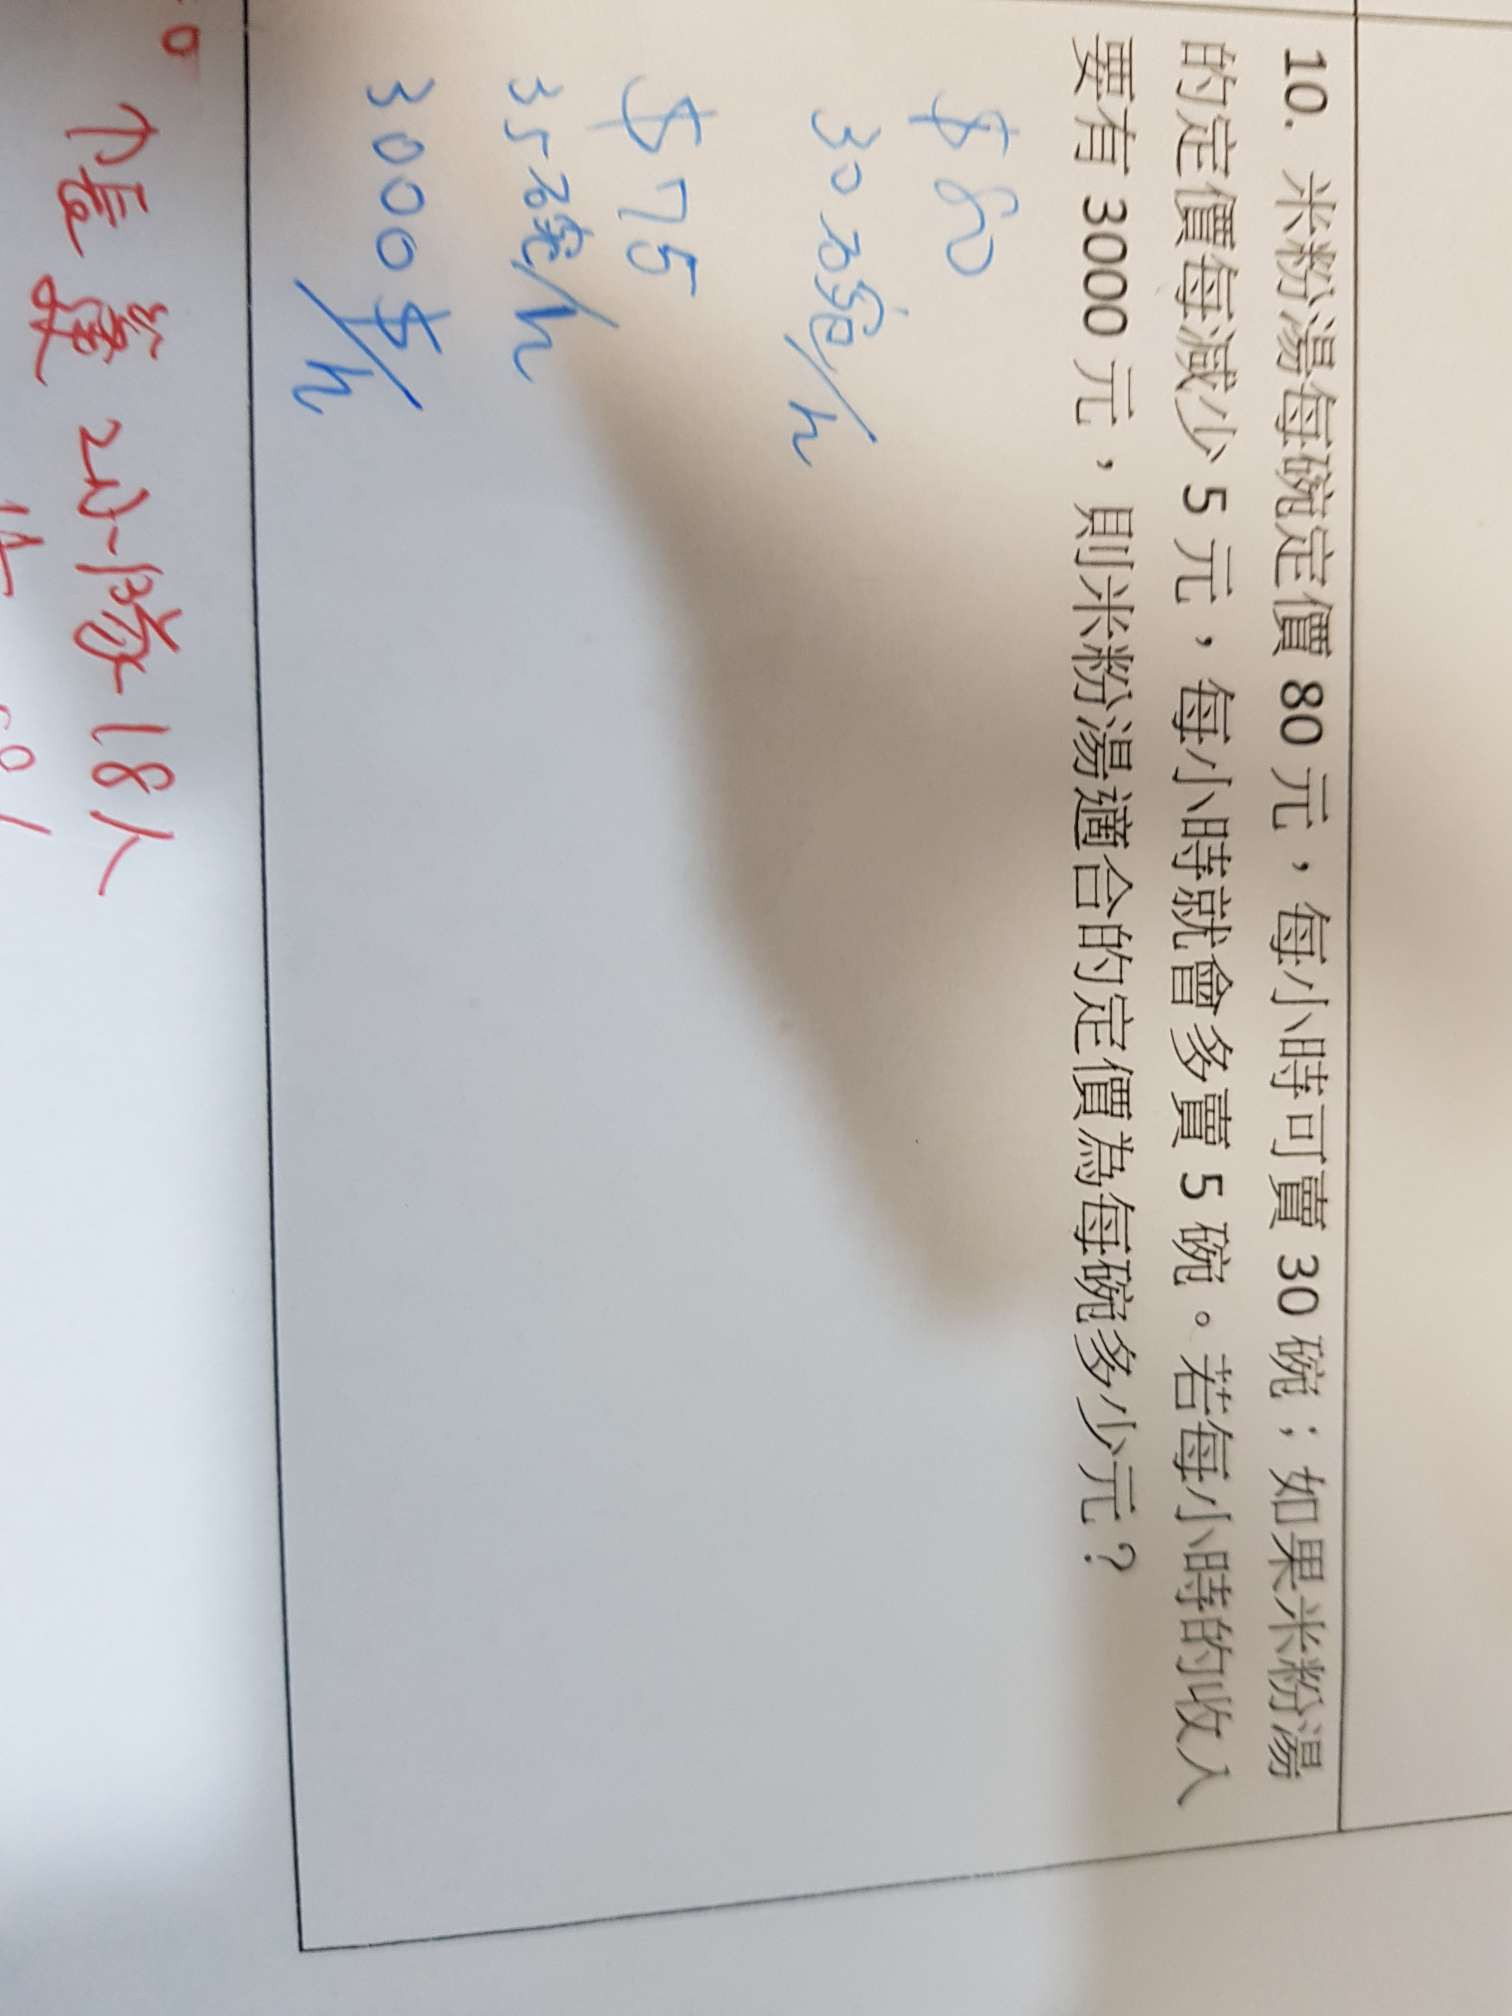 10. 米粉湯每碗定價 80 元，每小時可賣 30 碗；如果米粉湯
的定價每減少 5 元，每小時就會多賣 5 碗。若每小時的收入
要有 3000 元，則米粉湯適合的定價為每碗多少元？
$ 80
30 碗/h
$ 75
35 碗/h
3000 $/h
2小時 18人